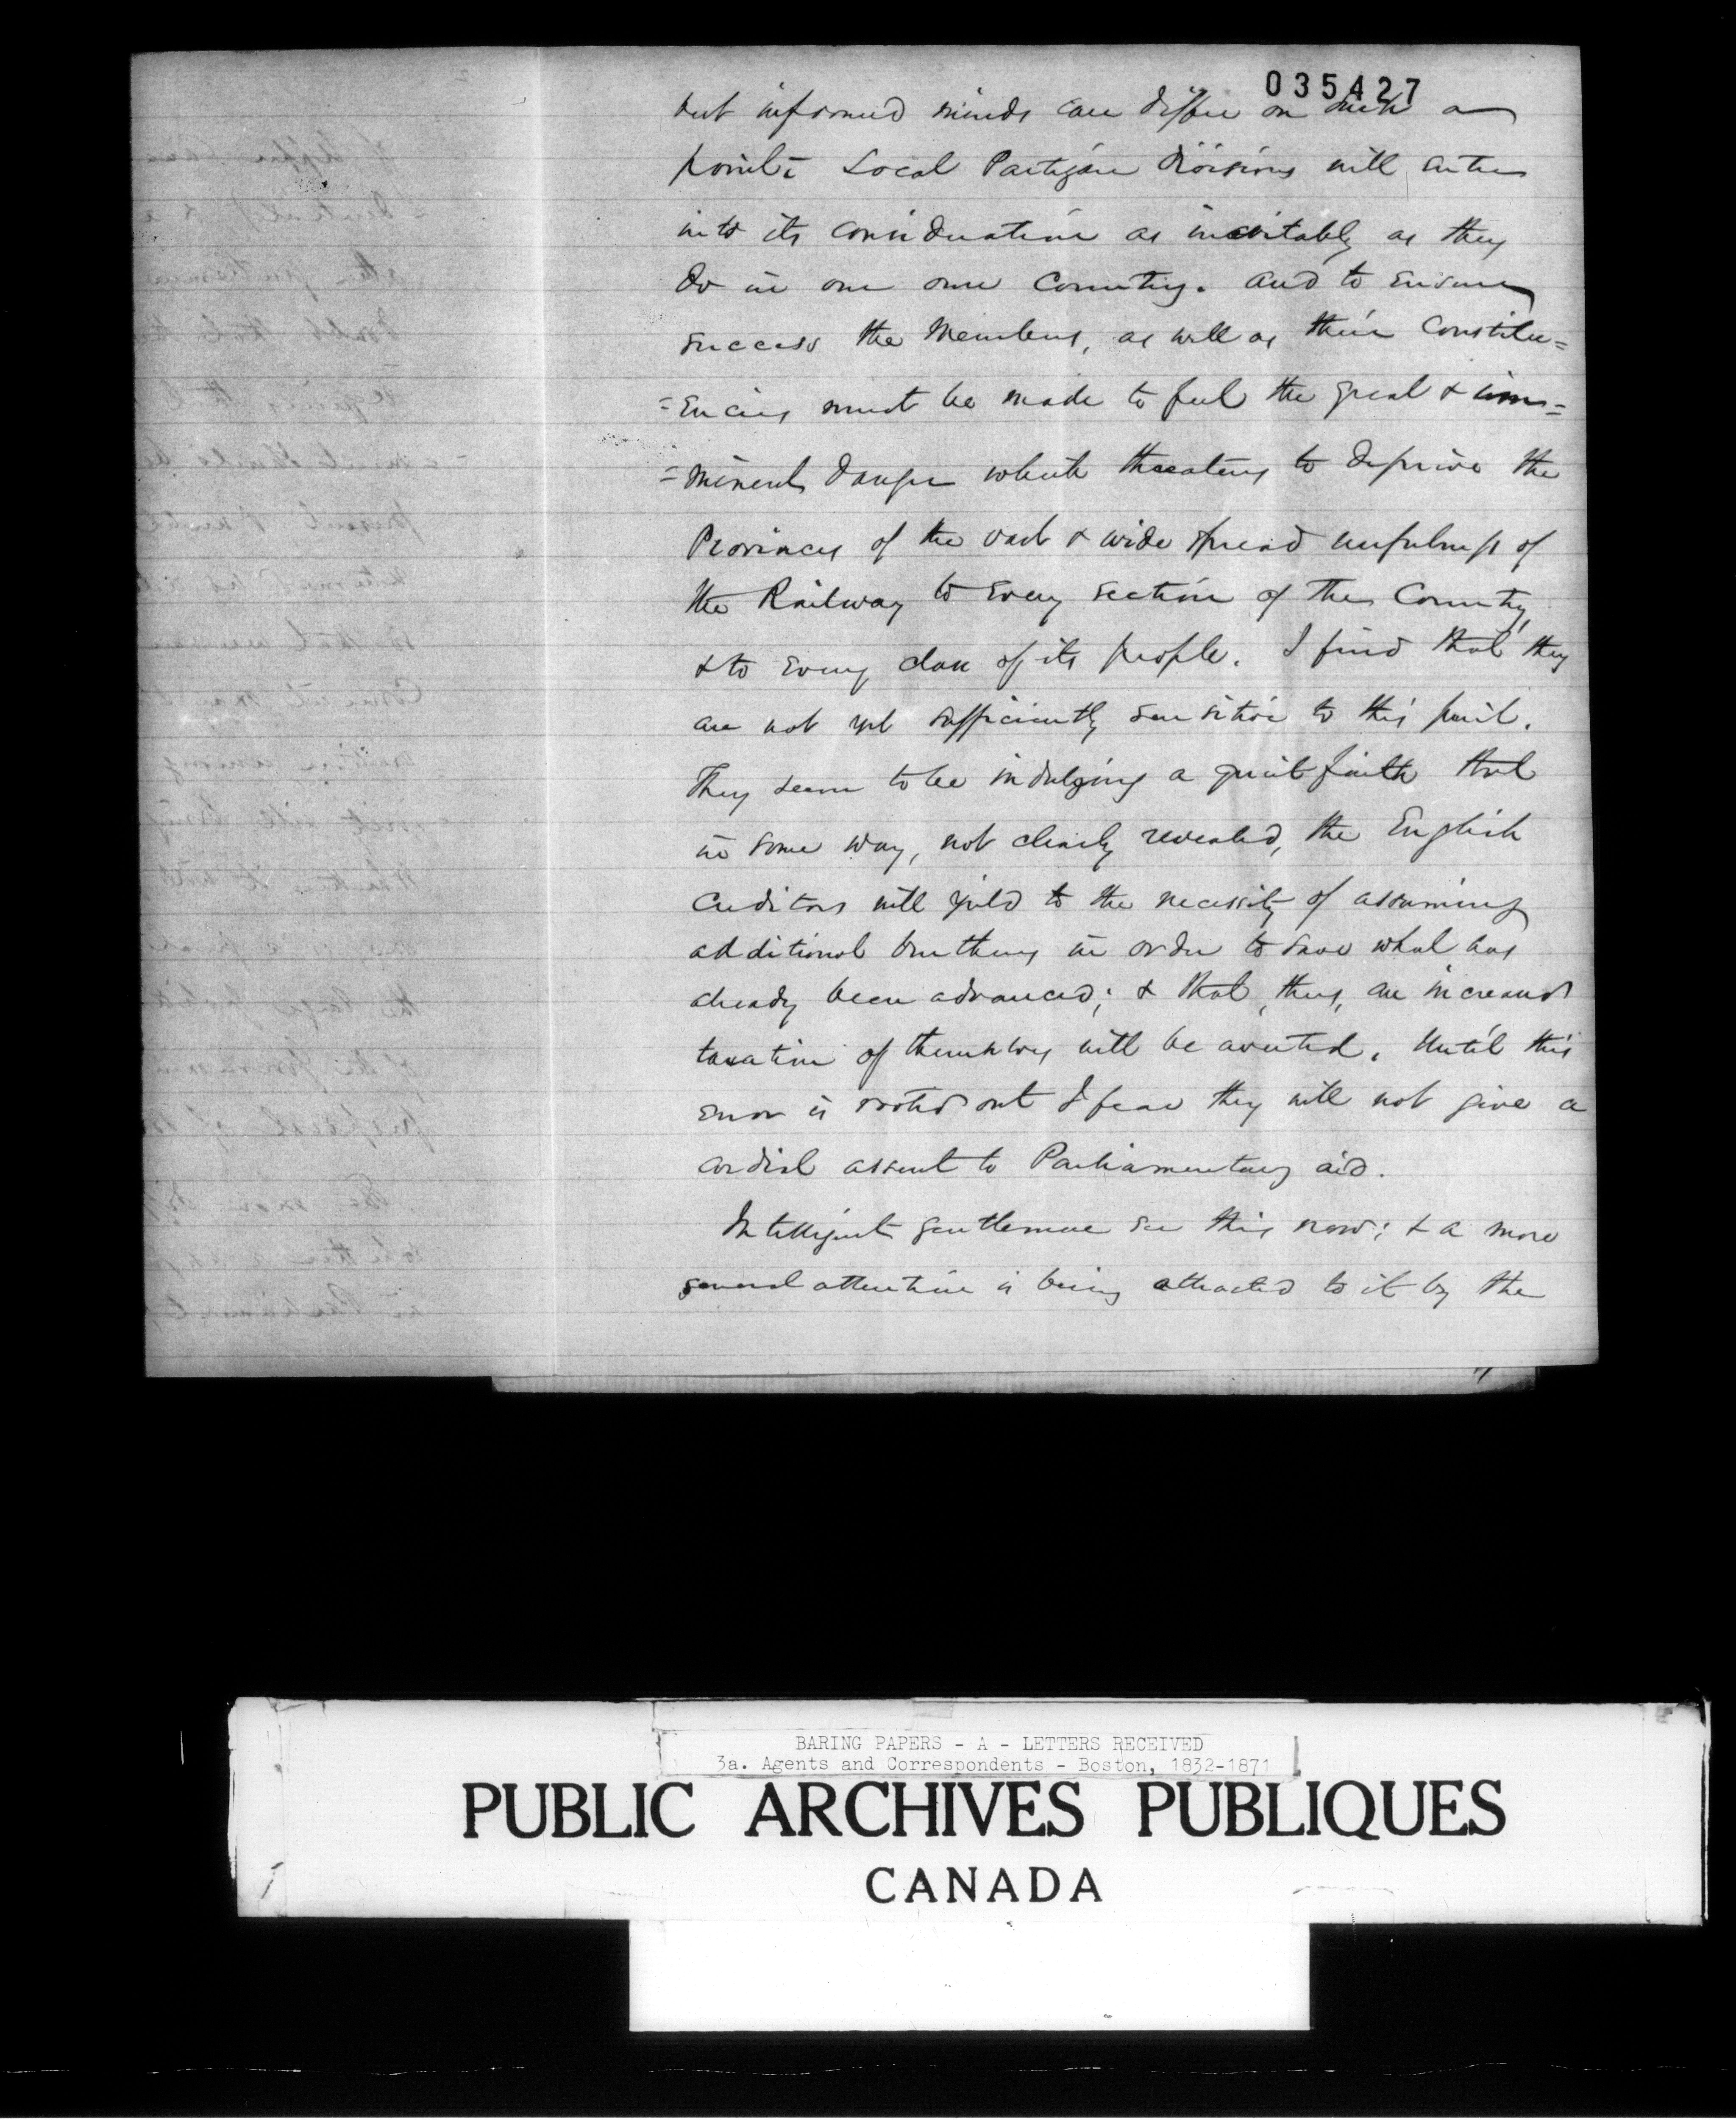 035427
but informed minds can differ on such a
point. Local Partizan divisions will enter
into its consideration as inevitably as they
do in our own Country. And to ensure
success the Members, as well as their Constitu=
=encies must be made to feel the great & imm=
=minent danger which threatens to deprive the
Provinces of the vast & wide spread usefulness of
the Railway to every section of the Country,
& to every class of its people. I find that they
are not yet sufficiently sensitive to this peril.
They seem to be indulging a quiet faith that
in some way, not clearly revealed, the English
Creditors will yield to the necessity of assuming
additional burthens in order to save what has
already been advanced; & that, thus, an increased
taxation of themselves will be averted. Until this
error is rooted out I fear they will not give a
cordial assent to Parliamentary aid.
Intelligent gentlemen see this now; & a more
general attention is being attracted to it by the
BARING PAPERS - A - LETTERS RECEIVED
3a. Agents and Correspondents - Boston, 1832-1871
PUBLIC ARCHIVES PUBLIQUES
CANADA